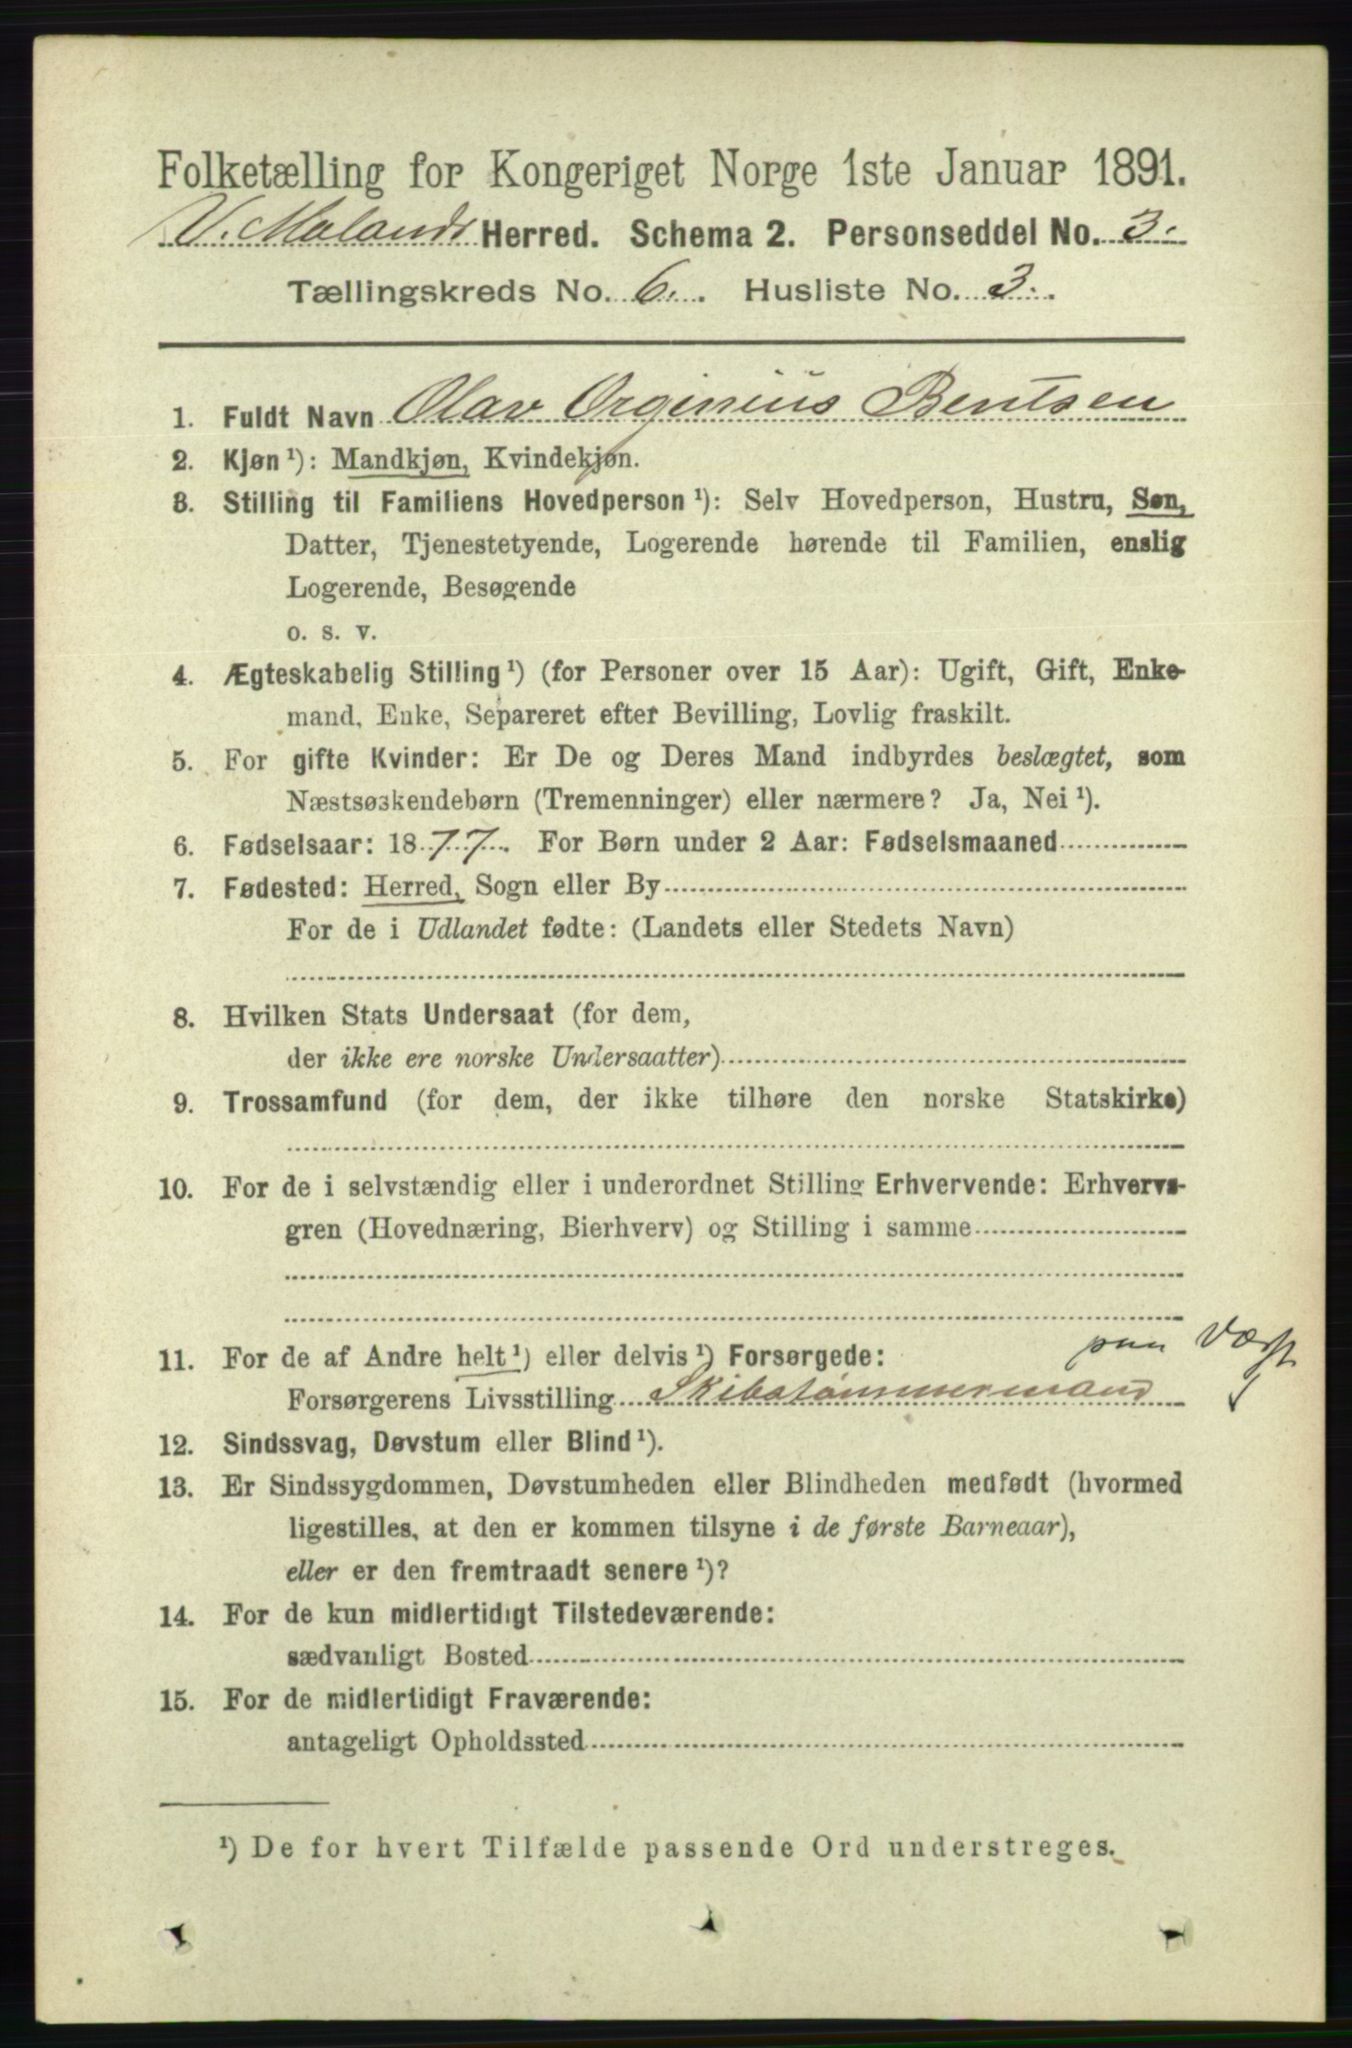 Folketælling for Kongeriget Norge 1ste Januar 1891.
V. Molands Herred. Schema 2. Personseddel No. 3.
Tællingskreds No. 6. Husliste No. 3.
1. Fuldt Navn Olav Orginius Bentsen
2. Kjøn¹): Mandkjøn, Kvindekjøn.
3. Stilling til Familiens Hovedperson¹): Selv Hovedperson, Hustru, Søn,
Datter, Tjenestetyende, Logerende hørende til Familien, enslig
Logerende, Besøgende
o. s. v.
4. Ægteskabelig Stilling¹) (for Personer over 15 Aar): Ugift, Gift, Enke-
mand, Enke, Separeret efter Bevilling, Lovlig fraskilt.
5. For gifte Kvinder: Er De og Deres Mand indbyrdes beslægtet, som
Næstsøskendebørn (Tremenninger) eller nærmere? Ja, Nei¹).
6. Fødselsaar: 1877. For Børn under 2 Aar: Fødselsmaaned
7. Fødested: Herred, Sogn eller By
For de i Udlandet fødte: (Landets eller Stedets Navn)
8. Hvilken Stats Undersaat (for dem,
der ikke ere norske Undersaatter)
9. Trossamfund (for dem, der ikke tilhøre den norske Statskirke)
10. For de i selvstændig eller i underordnet Stilling Erhvervende: Erhvervs-
gren (Hovednæring, Bierhverv) og Stilling i samme
11. For de af Andre helt¹) eller delvis¹) Forsørgede: paa Værft
Forsørgerens Livsstilling Skibstømmermand
12. Sindssvag, Døvstum eller Blind¹).
13. Er Sindssygdommen, Døvstumheden eller Blindheden medfødt (hvormed
ligestilles, at den er kommen tilsyne i de første Barneaar),
eller er den fremtraadt senere¹)?
14. For de kun midlertidigt Tilstedeværende:
sædvanligt Bosted
15. For de midlertidigt Fraværende:
antageligt Opholdssted
¹) De for hvert Tilfælde passende Ord understreges.